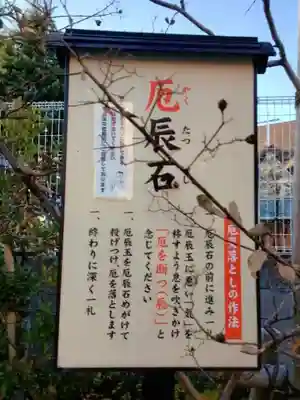 厄辰石
やくたつし
厄災落としの作法
一、厄辰石の前に進み一
厄辰玉に悪い「気」を
移すよう息を吹きかけ
「厄を断つ(辰)」と
念じてください
一、厄辰玉を厄辰石めがけて
投げつけ、厄を落とします
一、終わりに深く一礼